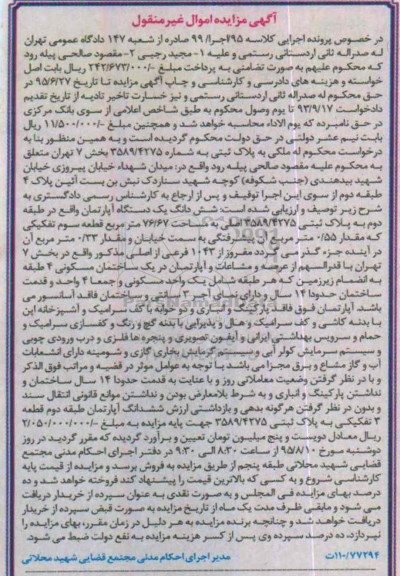 آگهی مزایده اموال غیرمنقول
در خصوص پرونده اجرایی کلاسه ۲۹۵اجرا/ ۹۹ صادره از شعبه ۱۴۷ دادگاه عمومی تهران
له صدراله ثانی اردستانی رستمی و علیه ۱- مجید رجبی ۲- مقصود صالحی پیله رود
که محکوم علیهم به صورت تضامنی به پرداخت مبلغ ۲۴۲/۶۷۳/۰۰۰/- ریال بابت اصل
خواسته و هزینه های دادرسی و کارشناسی و چاپ آگهی مزایده تا تاریخ ۹۵/۶/۲۷ در
حق محکوم له صدراله ثانی اردستانی رستمی و نیز خسارت تاخیر تادیه از تاریخ تقدیم
دادخواست ۹۳/۹/۱۷ تا یوم وصول محکوم به طبق شاخص اعلامی از سوی بانک مرکزی
در حق نامبرده که یوم الاداء محاسبه خواهد شد و همچنین مبلغ ۱۱/۵۰۰/۰۰۰/- ریال
بابت نیم عشر دولتی در حق دولت محکوم گردیده است و به همین منظور بنا به
درخواست محکوم له ملکی به پلاک ثبتی به شماره ۳۵۸۹/۴۲۷۵ بخش ۷ تهران متعلق
به محکوم علیه مقصود صالحی پیله رود واقع در: میدان شهداء خیابان پیروزی خیابان
شهید بیدهندی (جنب شکوفه) کوچه شهید ستاردک نبش بن بست آئین پلاک ۴
طبقه دوم از سوی این اجرا توقیف و پس از ارجاع به کارشناس رسمی دادگستری به
شرح زیر توصیف و ارزیابی شده است شش دانگ یک دستگاه آپارتمان واقع در طبقه
دوم به پلاک ثبتی ۳۵۸۹/۴۲۷۵ اصلی به مساحت ۷۶/۶۷ متر مربع قطعه سوم تفکیکی
که مقدار ۰/۵۵ متر مربع آن پیشرفتگی به سمت خیابان و مقدار ۰/۳۳ متر مربع آن
در آینده جزء گذر می گردد مفروز از ۱۰۴۳ فرعی از اصلی مذکور واقع در بخش ۷
تهران با قدرالسهم از عرصه و مشاعات و آپارتمان در یک ساختمان مسکونی ۴ طبقه
به انضمام زیرزمین که هر طبقه شامل یک واحد مسکونی و جمعا ۴ واحد و قدمت
ساختمان حدودا ۱۴ سال و دارای نمای آجر ۳ سانتی و ساختمان فاقد آسانسور می
باشد آپارتمان فوق فاقد پارکینگ و انباری و دو خوابه با کف سرامیک و آشپزخانه اپن
با بدنه کاشی و کف سرامیک و هال و پذیرایی با بدنه گچ و رنگ و کفسازی سرامیک و
حمام و سرویس بهداشتی ایرانی و آیفون تصویری و پنجره ها فلزی و درب ورودی چوبی
و سیستم سرمایش کولر آبی و سیستم گرمایش بخاری گازی و شومینه دارای انشعابات
آب و گاز مشاع و برق مجزا می باشد با توجه به عوامل موثر در قضیه و مراتب فوق الذکر
و با در نظر گرفتن وضعیت معاملاتی روز و با عنایت به قدمت حدودا ۱۴ سال ساختمان و
نداشتن پارکینگ و انباری و به شرط بلامعارض بودن و نداشتن موانع قانونی انتقال سند
و بدون در نظر گرفتن هرگونه بدهی و بازداشتی ارزش ششدانگ آپارتمان طبقه دوم قطعه
۳ تفکیکی به پلاک ثبتی ۳۵۸۹/۴۲۷۵ جهت پایه مزایده به مبلغ ۲/۰۵۰/۰۰۰/۰۰۰/-
ریال معادل دویست و پنج میلیون تومان تعیین و برآورد گردیده که مقرر گردید در روز
دوشنبه مورخ ۹۵/۸/۱۰ از ساعت ۸:۳۰ الی ۹:۳۰ در دفتر اجرای احکام مدنی مجتمع
قضایی شهید محلاتی طبقه پنجم از طریق مزایده به فروش برسد و مزایده از قیمت پایه
کارشناسی شروع و به کسی که بالاترین قیمت را پیشنهاد کند فروخته خواهد شد و ده
درصد بهای مزایده فی المجلس و به صورت نقدی به عنوان سپرده از خریدار دریافت
می شود و مابقی ظرف مدت یک ماه از تاریخ مزایده به صورت قبض سپرده از خریدار
دریافت خواهد شد و چنانچه برنده مزایده به هر دلیل در زمان مقرر، بهای مزایده را
نپردازد، ده درصد سپرده وی پس از کسر هزینه مزایده به نفع دولت ضبط می شود.
۱۱۰/۷۷۲۹۴ت مدیر اجرای احکام مدنی مجتمع قضایی شهید محلاتی